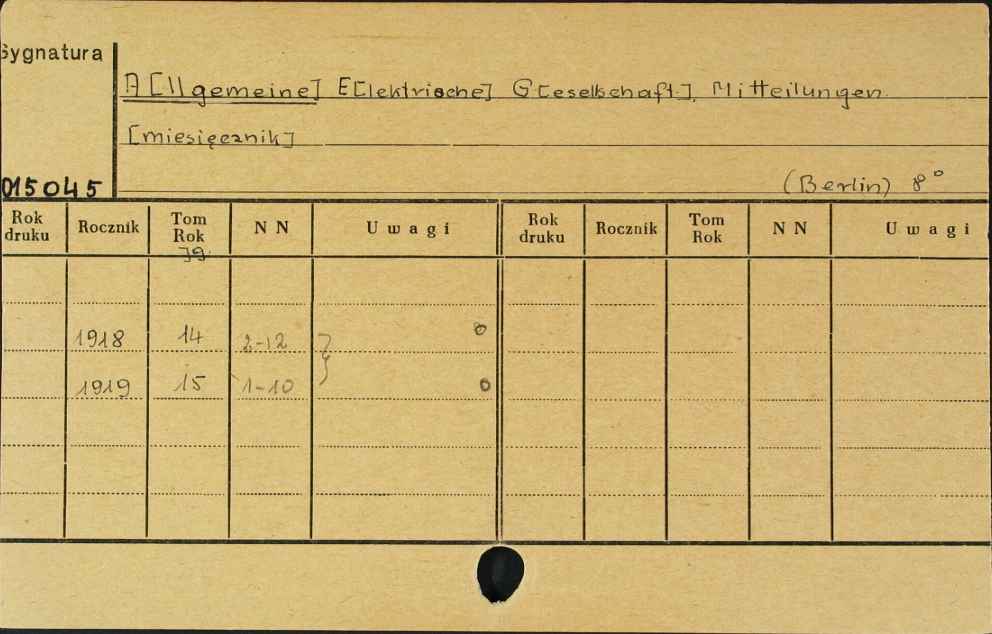 Sygnatura
A[llgemeine] E[lektrische] G[esellschaft]. Mitteilungen.
[miesięcznik]
015045 (Berlin) 8°
Rok druku Rocznik Tom Rok Jg. N N Uwagi Rok druku Rocznik Tom Rok N N Uwagi
1918 14 2-12 }
1919 15 1-10